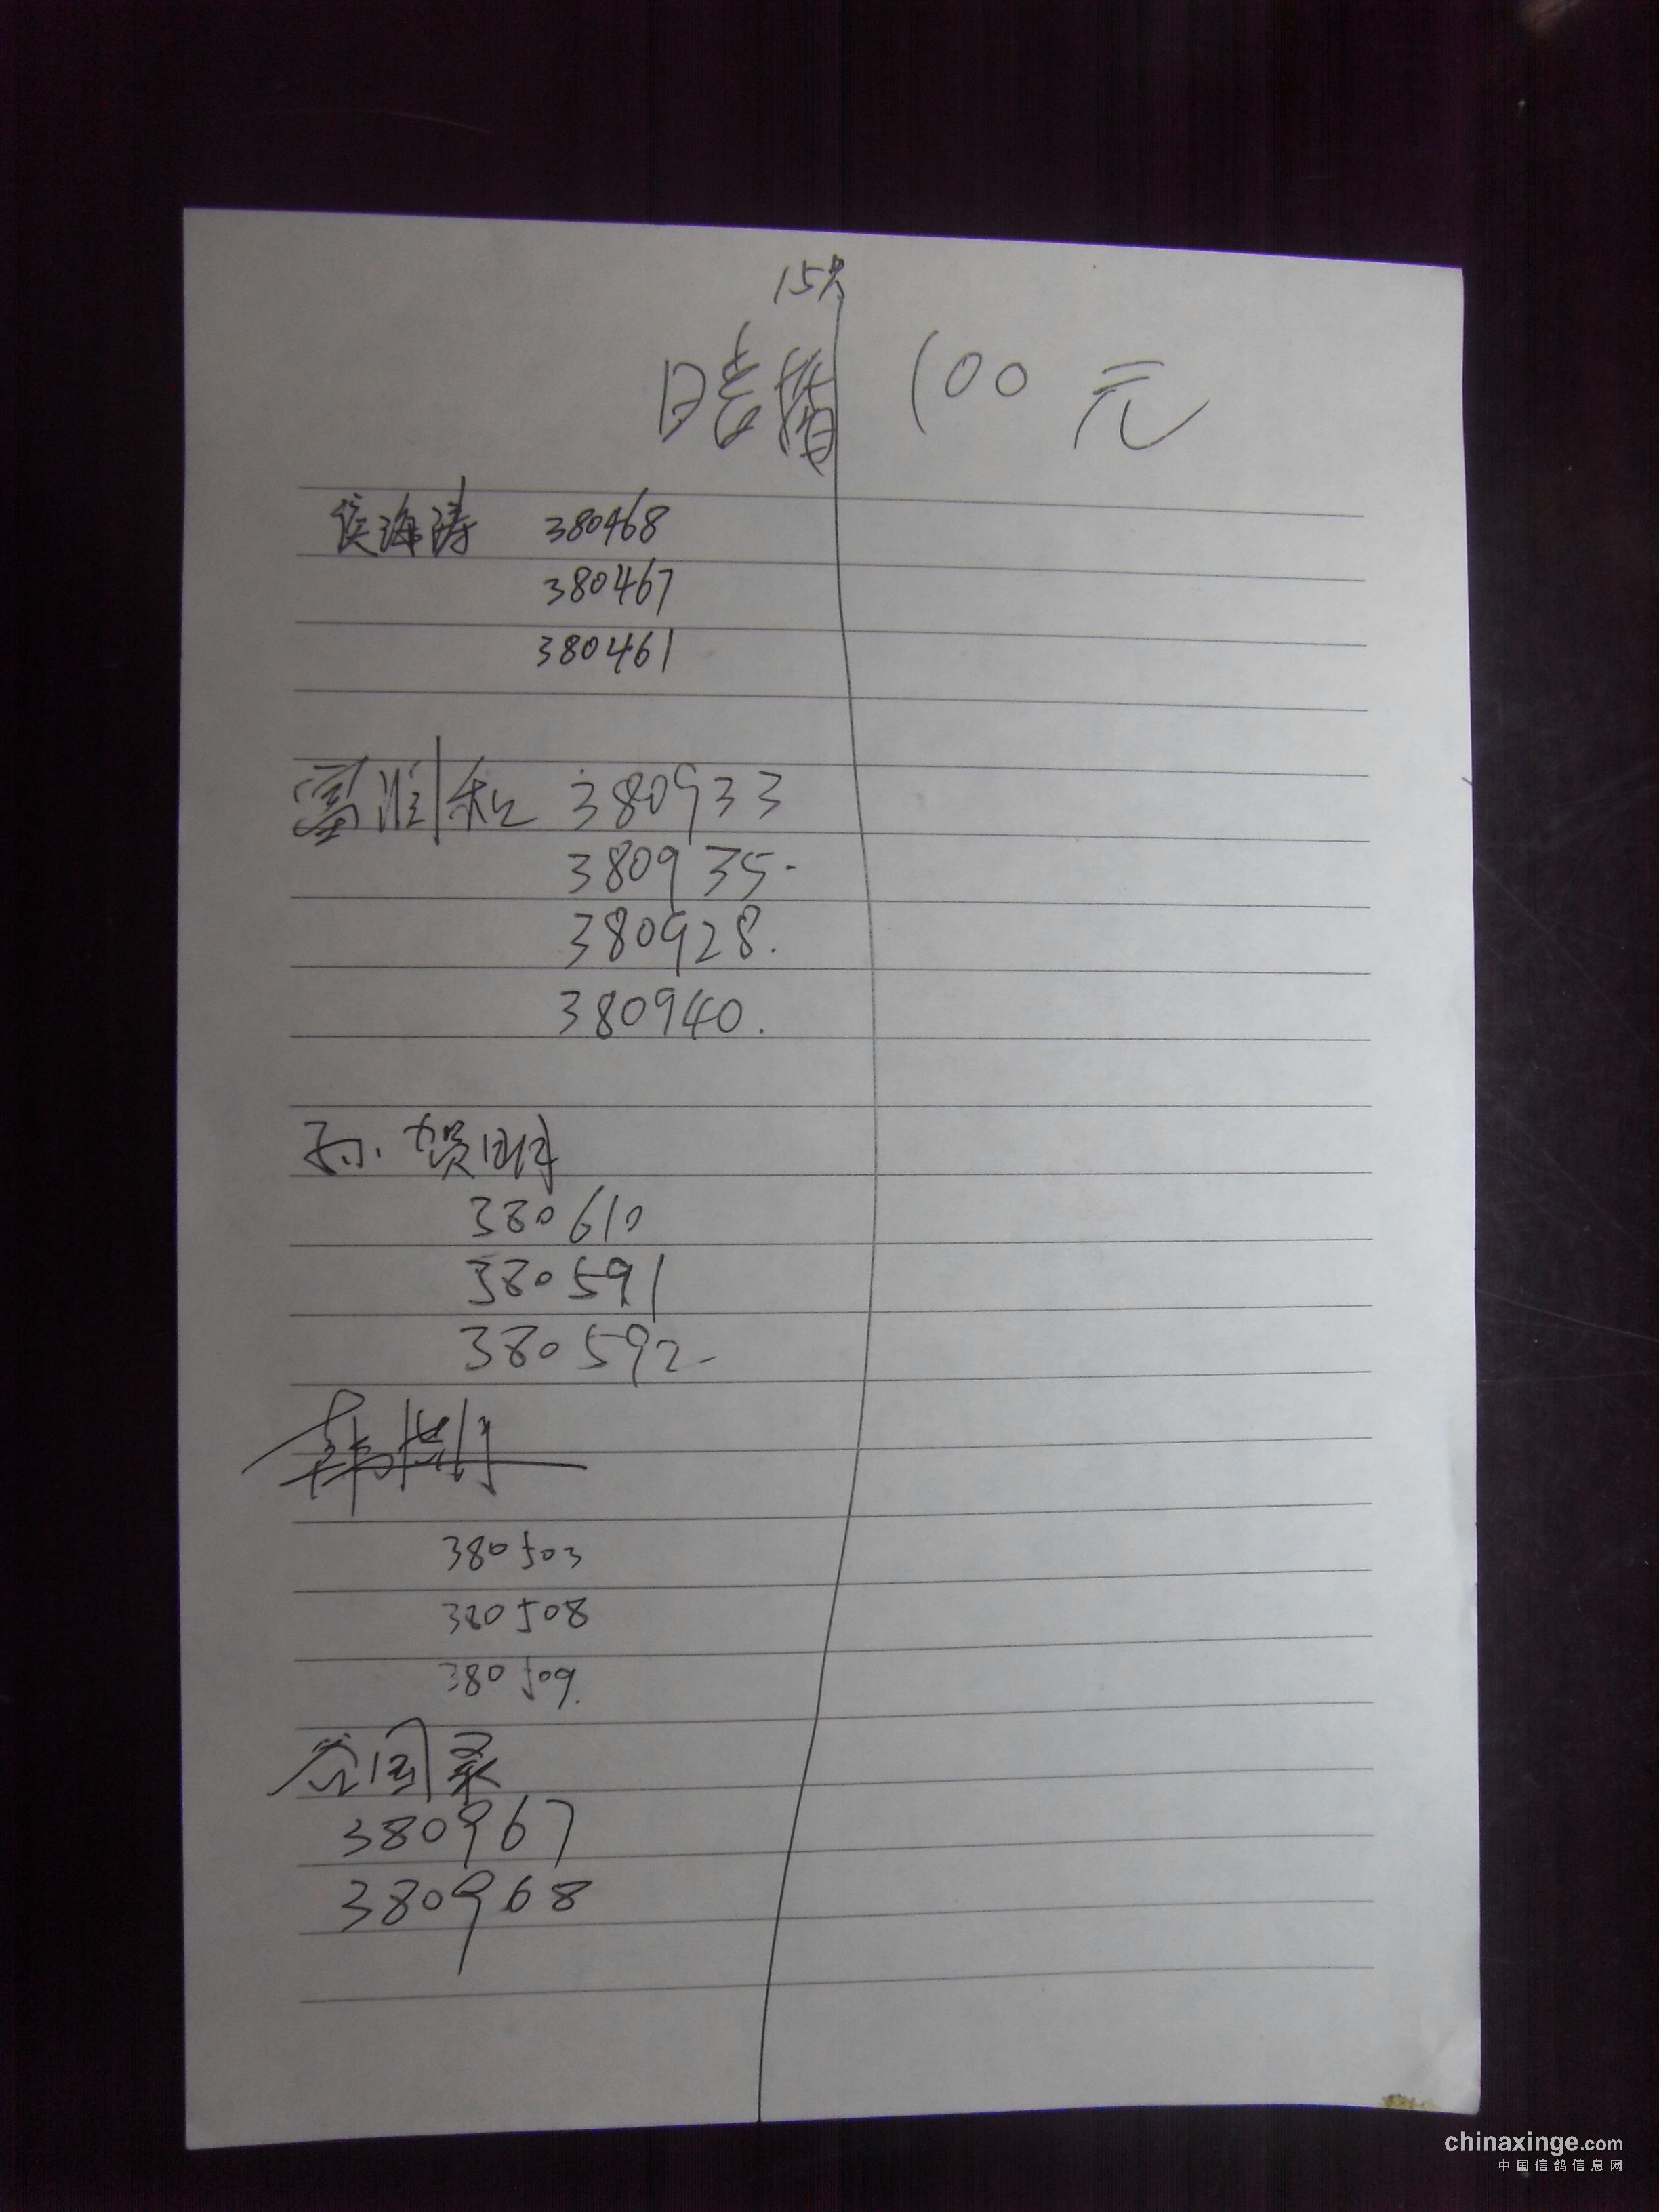 15只
暗插 100元
侯海涛 380468
380467
380461
380933
380935.
380928.
380940.
孙贺明
380610
380591
380592
380503
380508
380509.
谷国录
380967
380968
chinaxinge.com
中国信鸽信息网